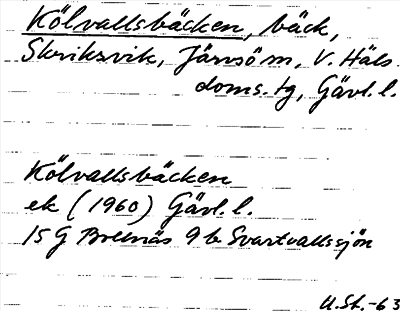 Kölvallsbäcken, bäck,
Skriksvik, Järvsöm, V. Häls.
doms.tg, Gävl.l.
Kölvallsbäcken
ek (1960) Gävl.l.
15 G Brelnäs 9 b Svartvallssjön
U.St.-63